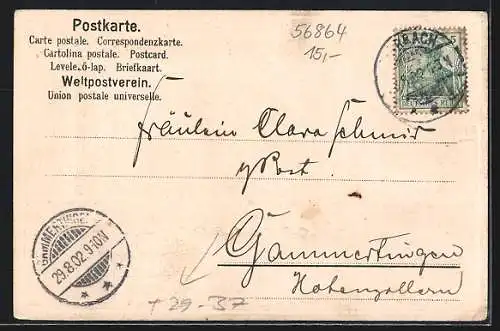 Postkarte.
Carte postale. Correspondenzkarte.
Cartolina postale. Postcard.
Levelező-lap. Briefkaart.
Weltpostverein.
Union postale universelle.
56864
15,-
5
DEUTSCHES REICH
Fräulein Clara Schmid
z. Post.
Gammertingen
Hohenzollern
GAMMERTINGEN
29.8.02.9-10N
+ 29-37